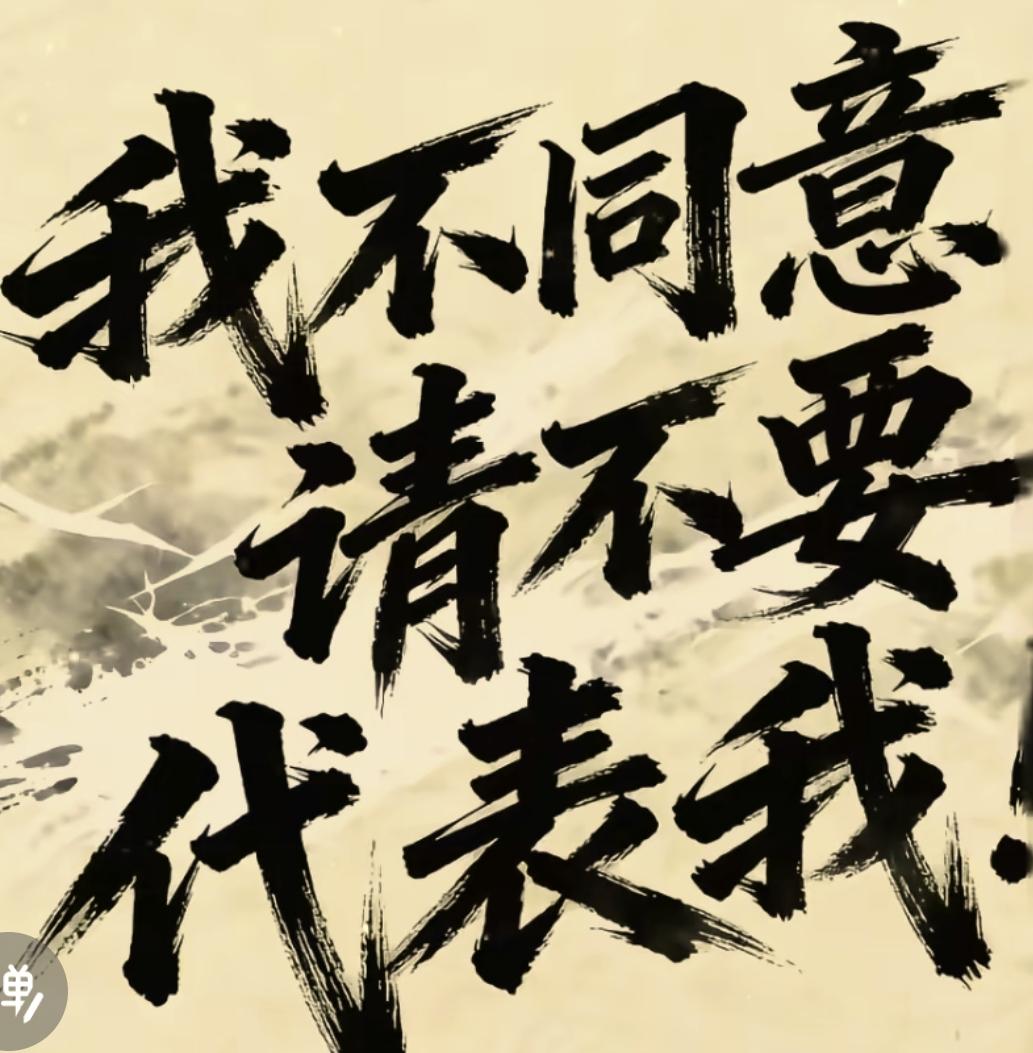 我不同意
请不要
代表我!
单